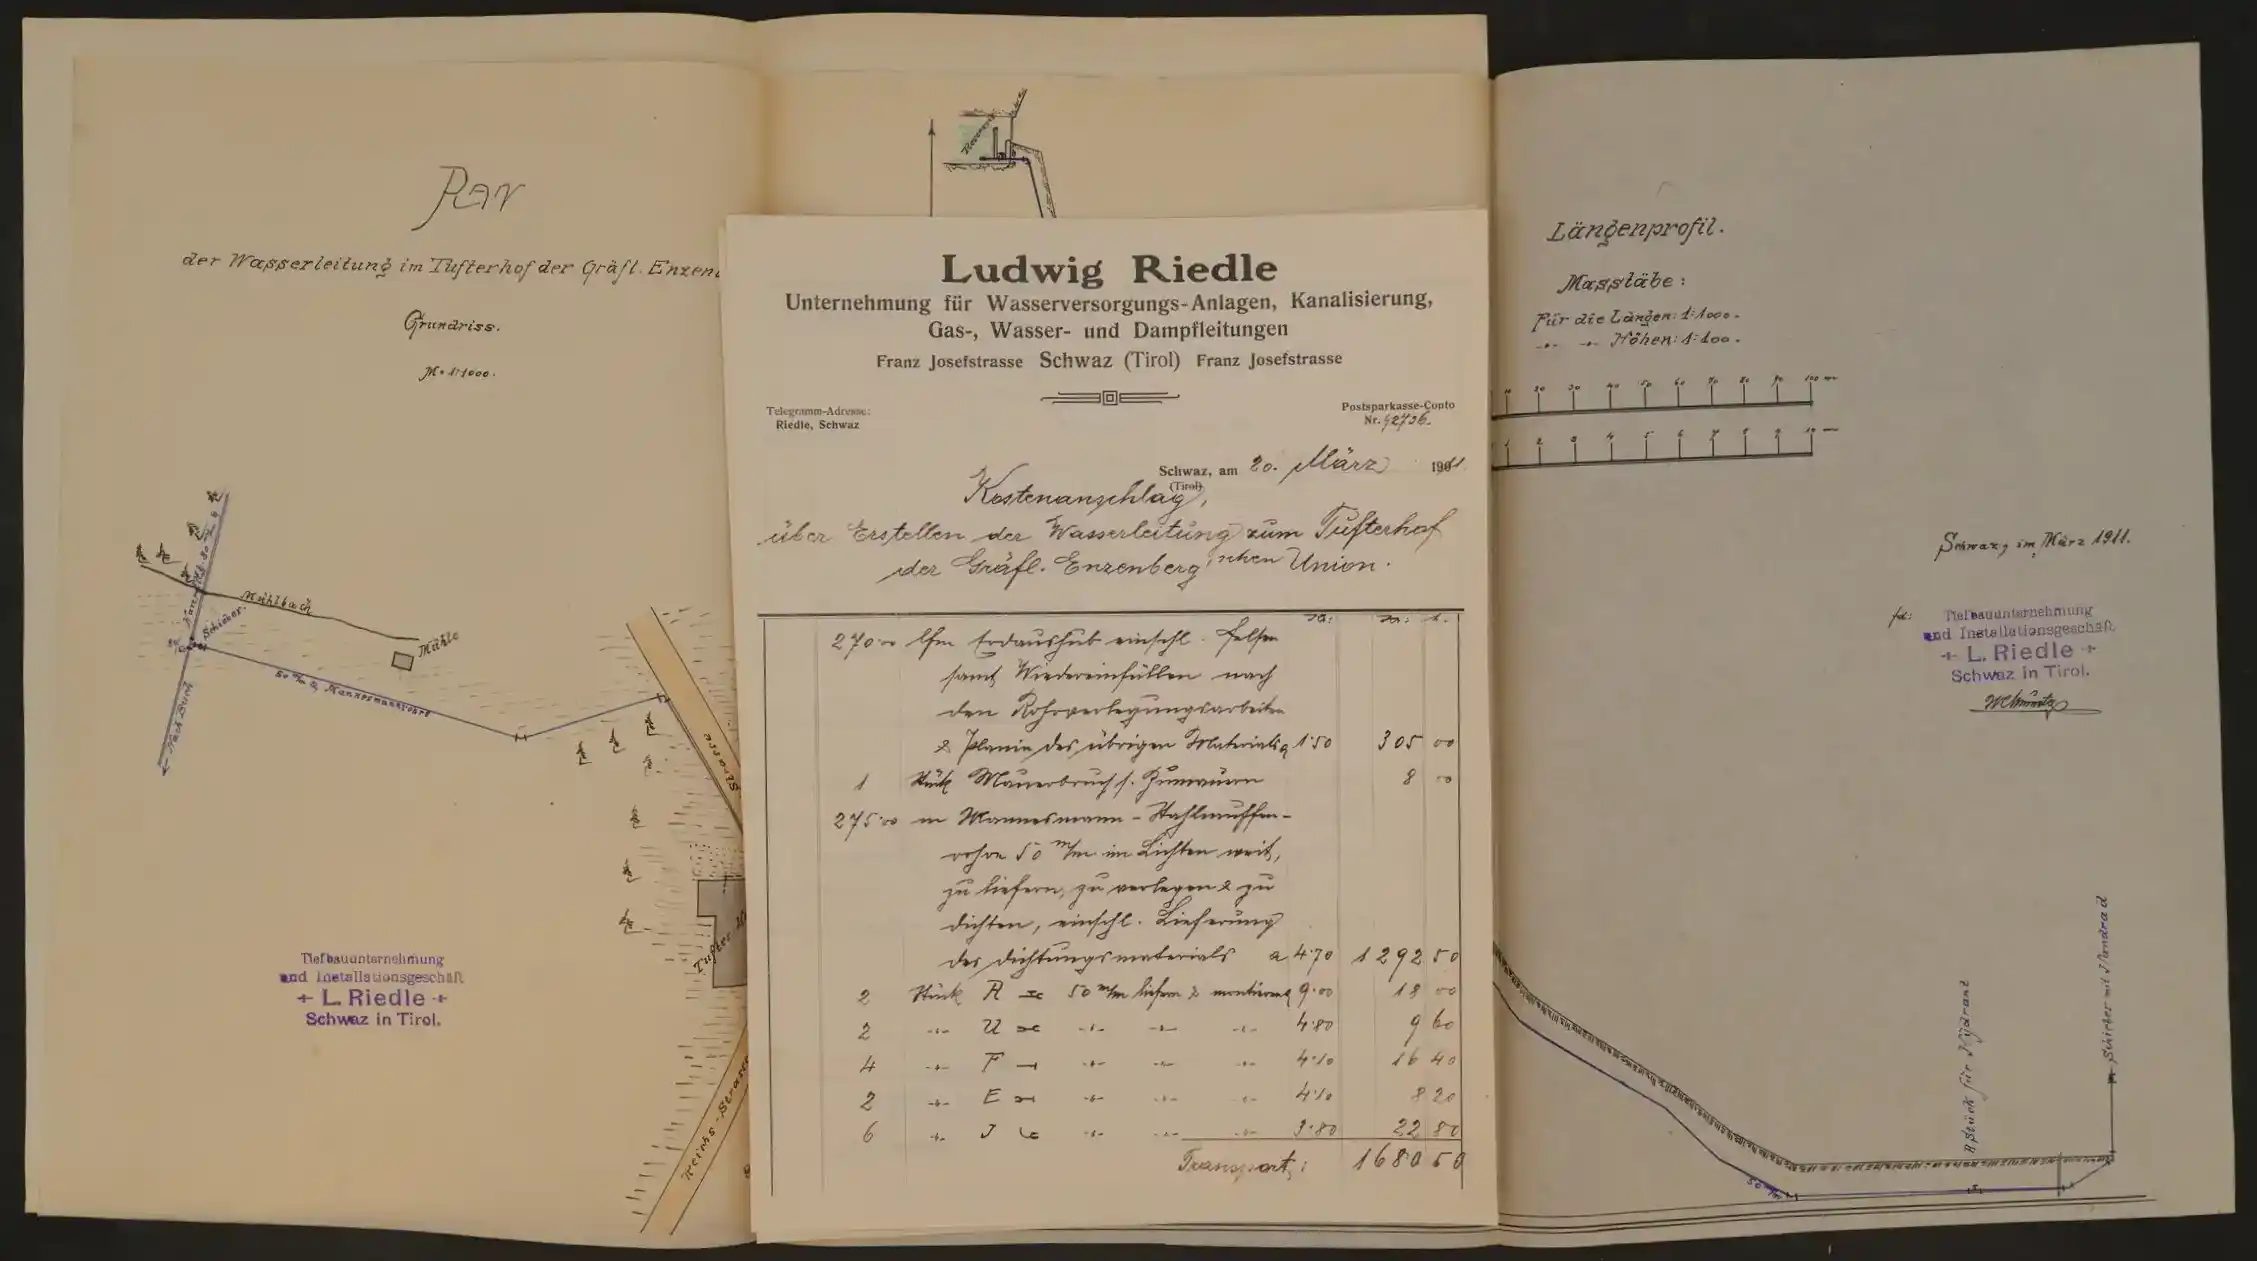 Plan
der Wasserleitung im Tufterhof der Gräfl. Enzen
Grundriss.
M = 1:1000.
Mühlbach
Schieber
Mühle
50 m/m Mannesmannrohre
Nach Buch
Strasse
Tufter
Reichs-Strasse
Tiefbauunternehmung
und Installationsgeschäft
L. Riedle
Schwaz in Tirol.
Reservoir
Ludwig Riedle
Unternehmung für Wasserversorgungs-Anlagen, Kanalisierung,
Gas-, Wasser- und Dampfleitungen
Franz Josefstrasse Schwaz (Tirol) Franz Josefstrasse
Telegramm-Adresse:
Riedle, Schwaz
Postsparkasse-Conto
Nr.
Schwaz, am 20. März 1911
(Tirol)
Kostenanschlag,
über Erstellen der Wasserleitung zum Tufterhof
der Gräfl. Enzenberg'schen Union.
270·00 lfm Erdaushub einschl. Felsen
samt Wiedereinfüllen nach
den Rohrverlegungsarbeiten
& Planie des übrigen Materials a 1·50 305 00
1 Stück Mauerbruch s. Zumauern 8 00
275·00 m Mannesmann-Stahlmuffen-
rohre 50 m/m im Lichten weit,
zu liefern, zu verlegen & zu
dichten, einschl. Lieferung
des Dichtungsmaterials a 4·70 1292 50
2 Stück A 50 m/m liefern & montieren a 9·00 18 00
2 U 4·80 9 60
4 F 4·10 16 40
2 E 4·10 8 20
6 J 3·80 22 80
Transport: 1680 50
Längenprofil.
Massstäbe:
Für die Längen: 1:1000.
Höhen: 1:100.
20 30 40 50 60 70 80 90 100 m
1 2 3 4 5 6 7 8 9 10 m
Schwaz, im März 1911.
Tiefbauunternehmung
und Installationsgeschäft
L. Riedle
Schwaz in Tirol.
50 m/m
A Stück für Hydrant
Schieber mit Handrad